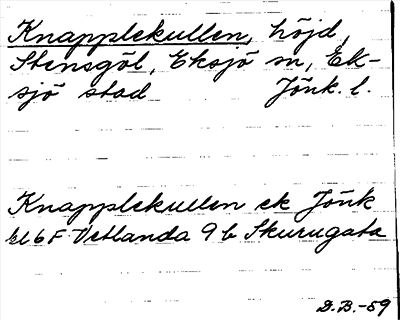 Knapplekullen, höjd,
Stensgöl, Eksjö sn, Ek-
sjö stad Jönk. l.
Knapplekullen ek Jönk
bl 6F Vetlanda 9 b Skurugata
D.B.-59